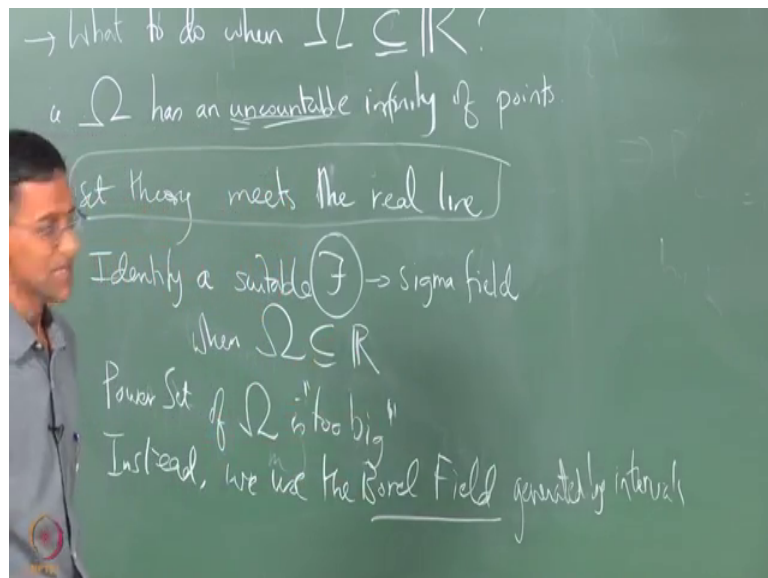 → What to do when Ω ⊆ ℝ?
Ω has an uncountable infinity of points.
Set theory meets the real line
Identify a suitable ℱ → sigma field
when Ω ⊆ ℝ
Power Set of Ω is "too big"
Instead, we use the Borel Field generated by intervals